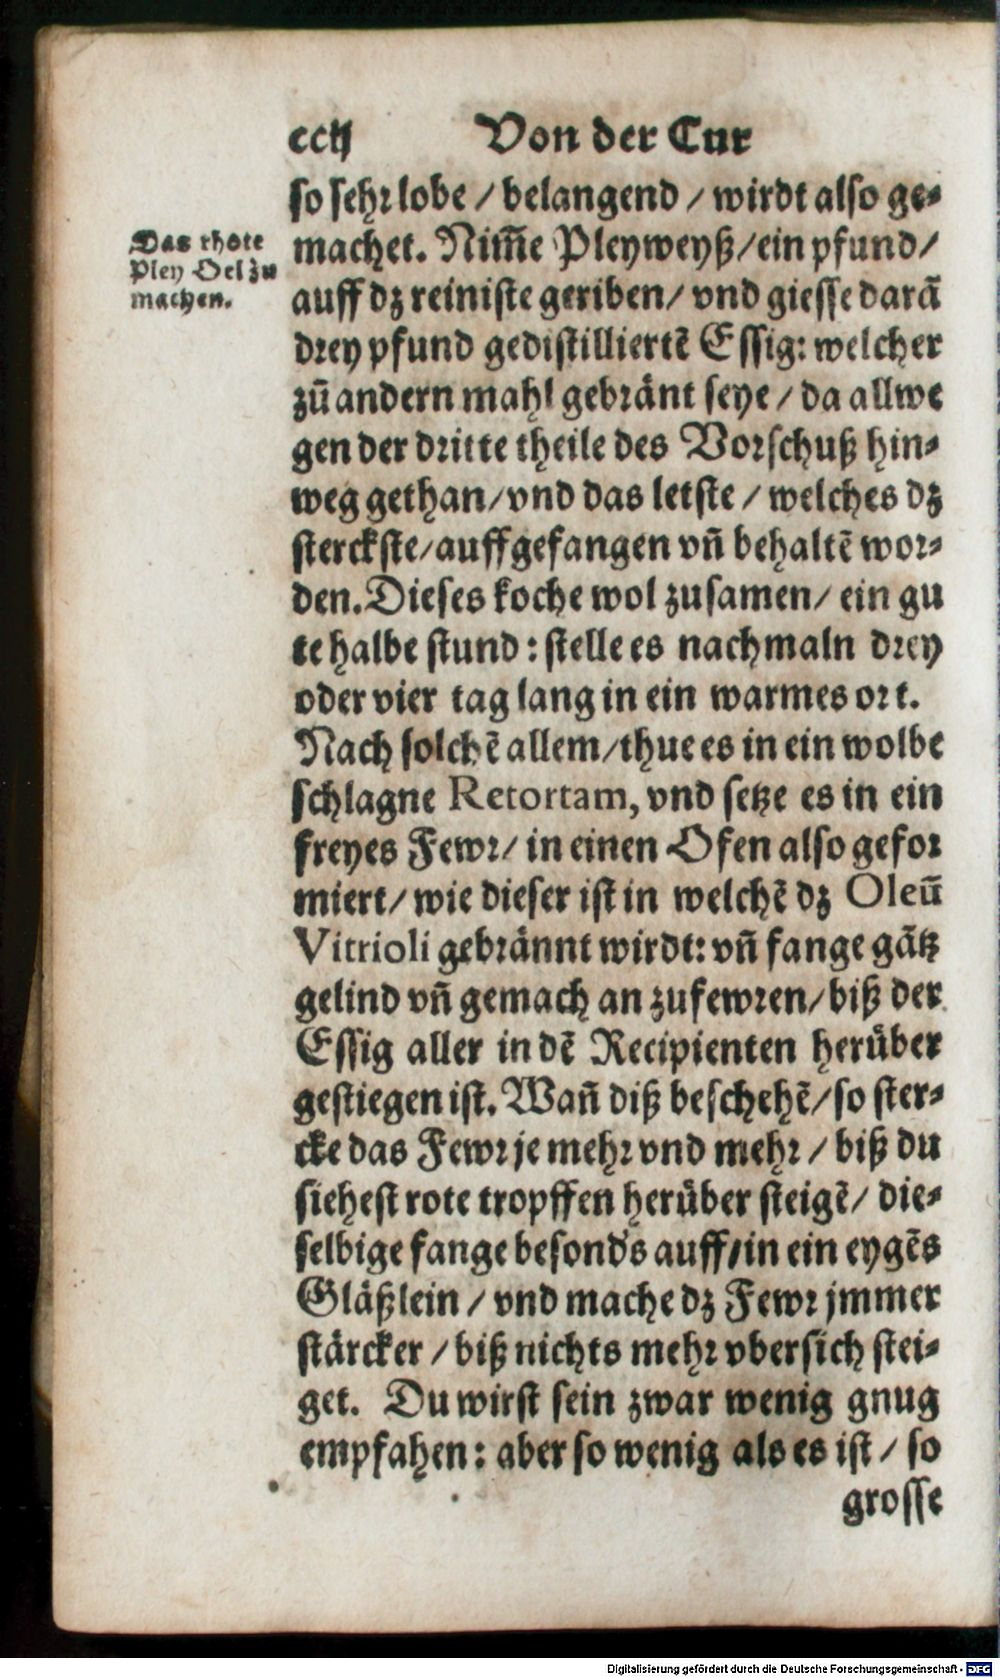 ccij Von der Cur
so sehr lobe / belangend / wirdt also ge⸗
Das rhote
Pley Oel zu
machen.
machet. Nim̃e Pleyweyß/ein pfund/
auff dz reiniste geriben/ vnd giesse darã
drey pfund gedistilliertẽ Essig: welcher
zũ andern mahl gebränt seye / da allwe
gen der dritte theile des Vorschuß hin⸗
weg gethan/vnd das letste / welches dz
sterckste/auffgefangen vñ behaltẽ wor⸗
den. Dieses koche wol zusamen/ ein gu
te halbe stund: stelle es nachmaln drey
oder vier tag lang in ein warmes ort.
Nach solchẽ allem/thue es in ein wolbe
schlagne Retortam, vnd setze es in ein
freyes Fewr/ in einen Ofen also gefor
miert/ wie dieser ist in welchẽ dz Oleũ
Vitrioli gebrännt wirdt: vñ fange gãtz
gelind vñ gemach an zufewren/biß der
Essig aller in dẽ Recipienten herüber
gestiegen ist. Wañ diß beschehẽ/so ster⸗
cke das Fewr je mehr vnd mehr / biß du
siehest rote tropffen herüber steigẽ/ die⸗
selbige fange besond's auff/in ein eygẽs
Gläßlein / vnd mache dz Fewr jmmer
stärcker / biß nichts mehr vbersich stei⸗
get. Du wirst sein zwar wenig gnug
empfahen: aber so wenig als es ist / so
grosse
Digitalisierung gefördert durch die Deutsche Forschungsgemeinschaft - DFG